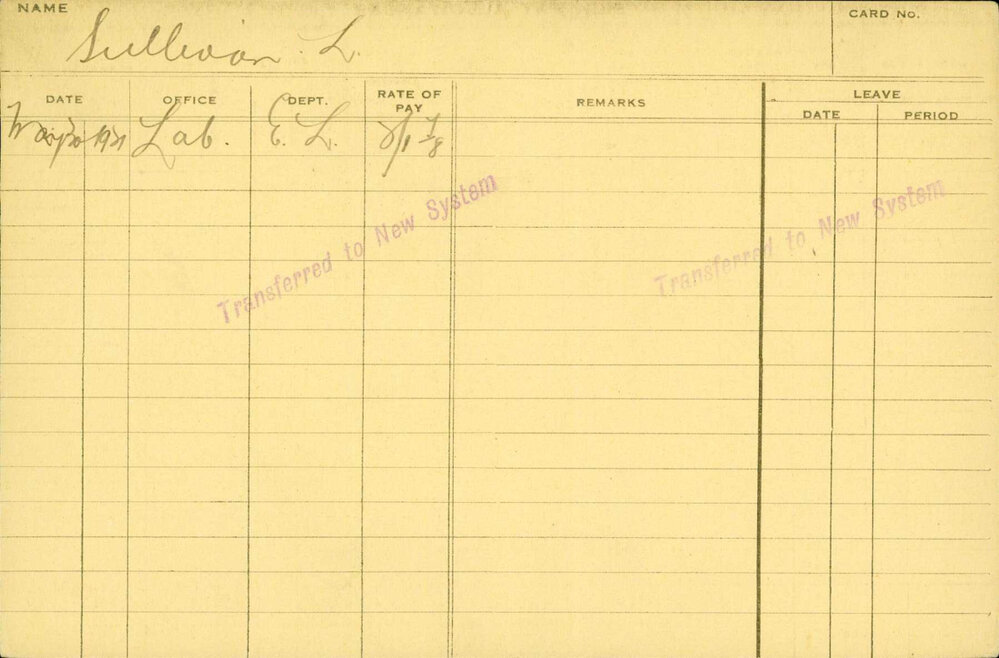 NAME
CARD No.
Sullivan. L.
DATE OFFICE DEPT. RATE OF PAY REMARKS LEAVE
DATE PERIOD
1921 Lab. E. L. 2/1 7/8
Transferred to New System
Transferred to New System